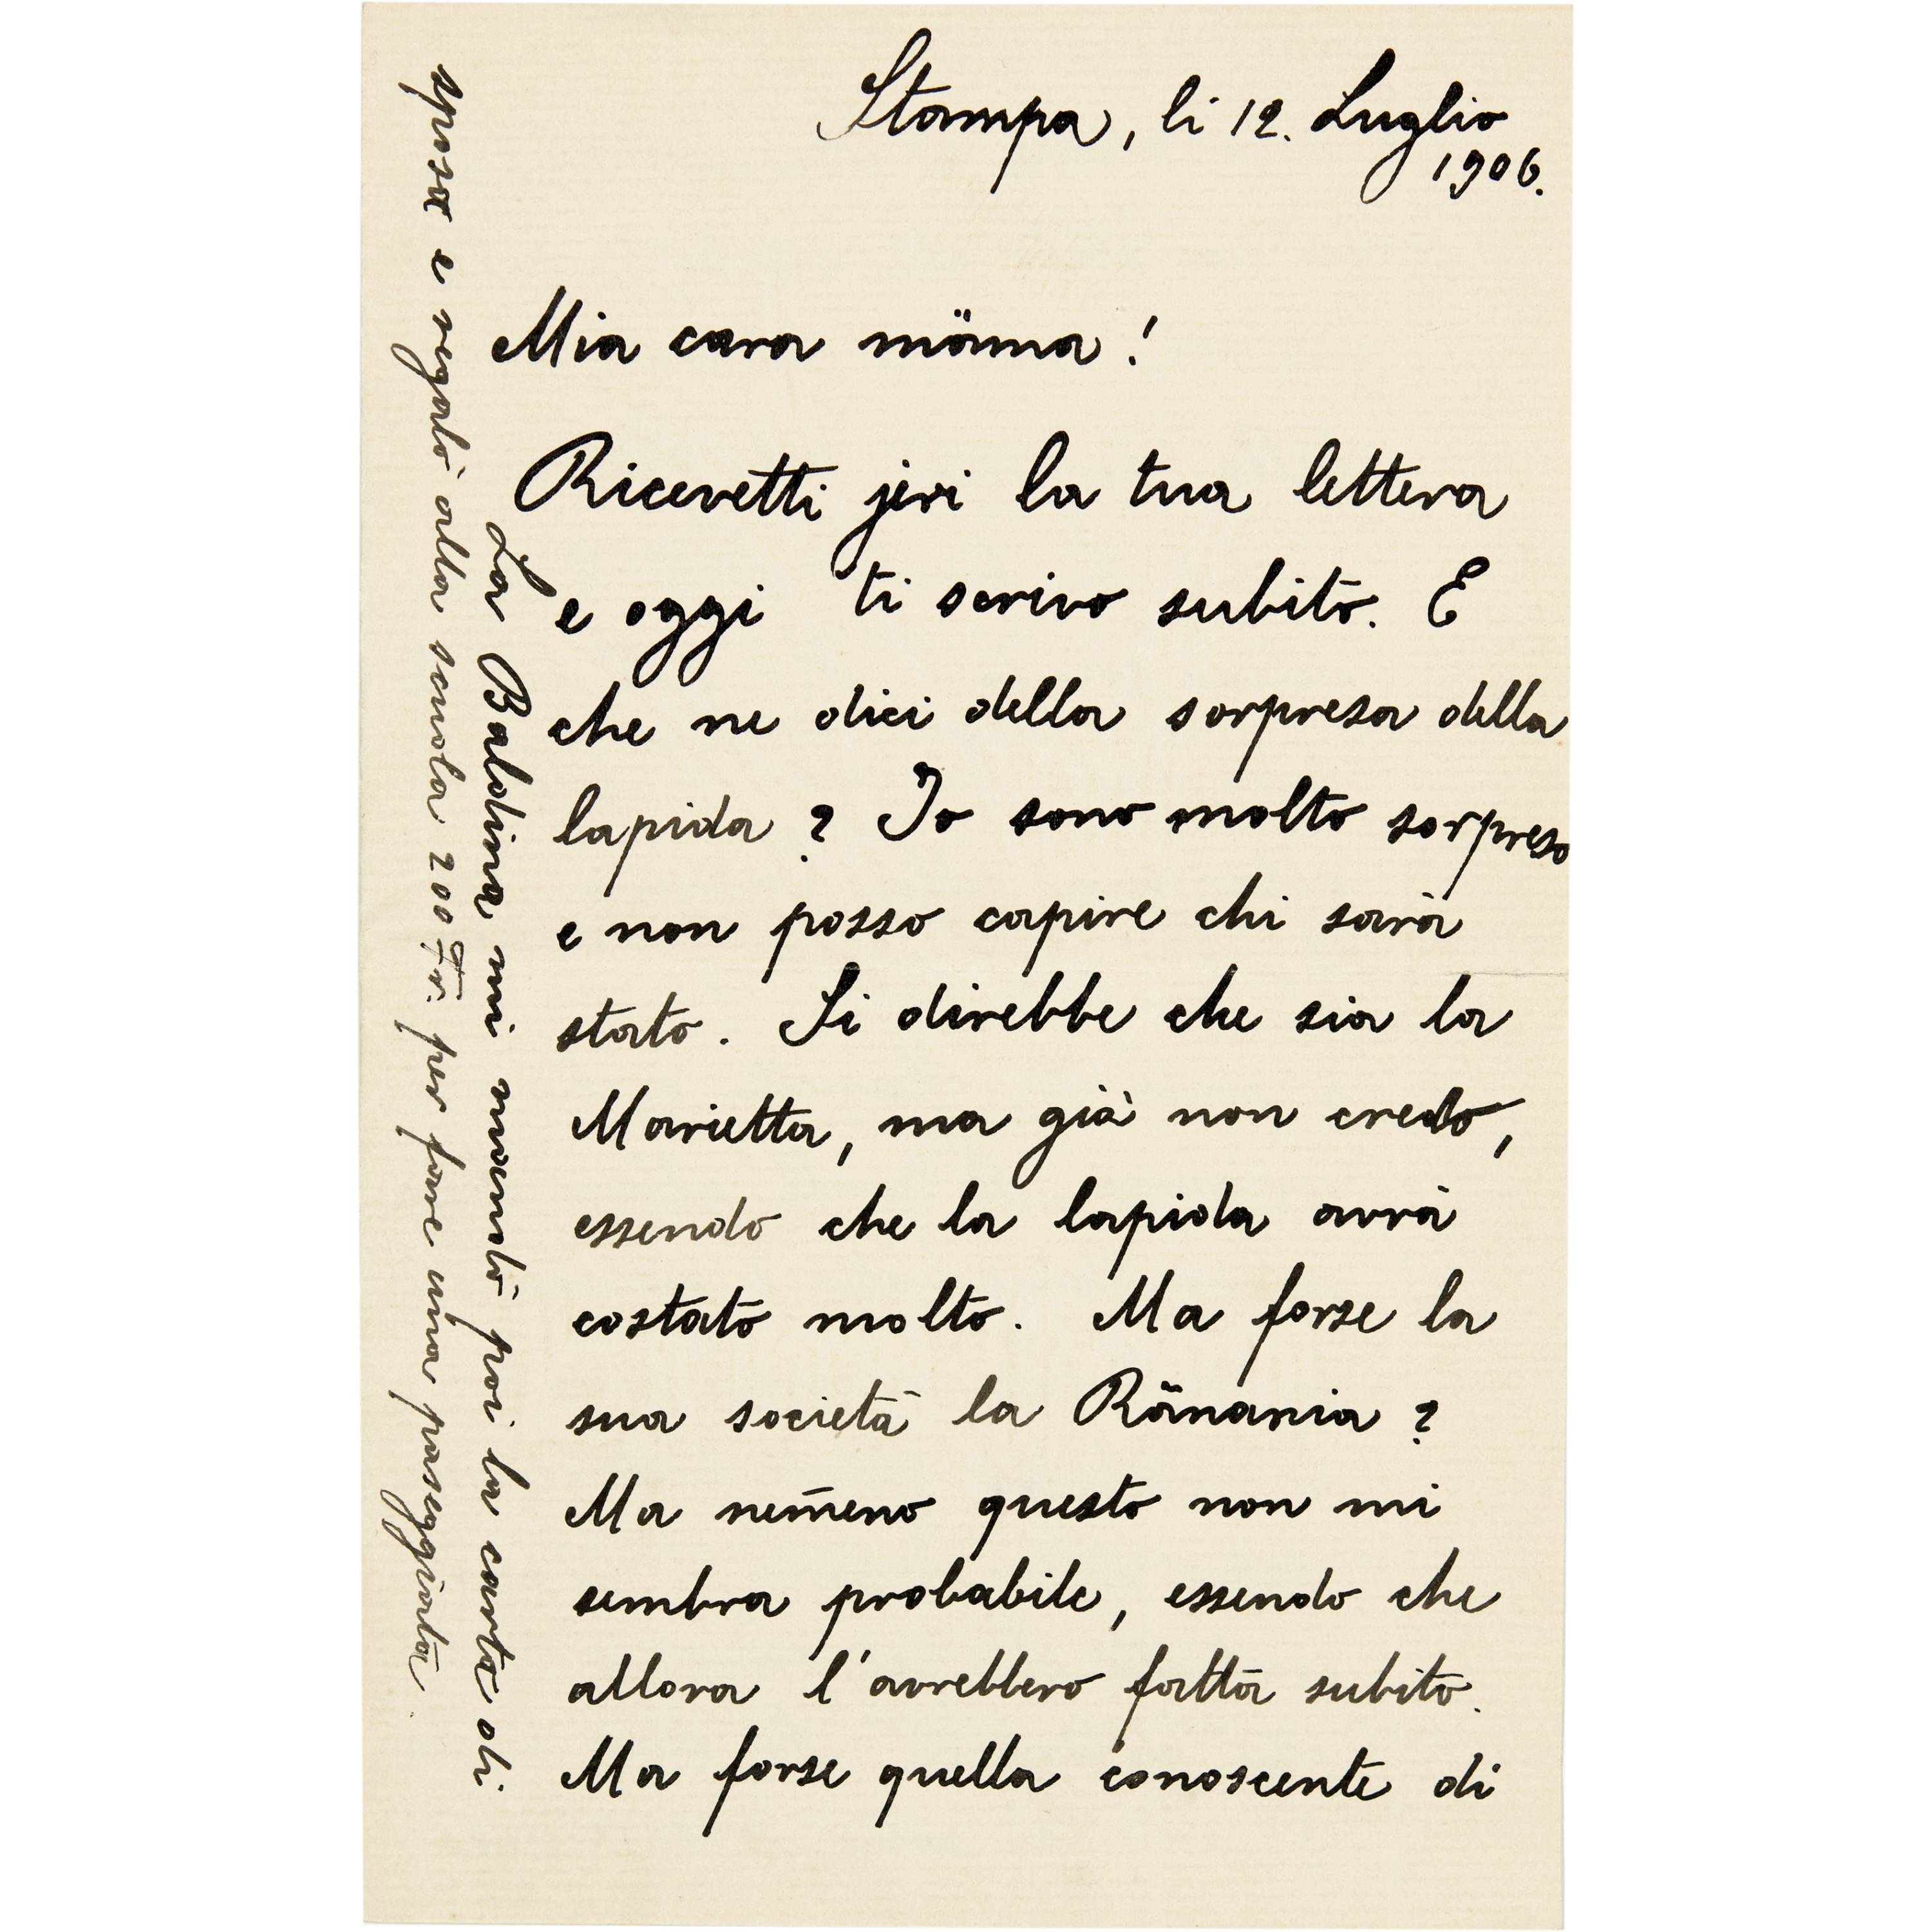 Stampa, li 12. Luglio
1906.
Mia cara mäma!
Ricevetti jeri la tua lettera
e oggi ti scrivo subito. E
che ne dici della sorpresa della
lapida? Io sono molto sorpreso
e non posso capire chi sarà
stato. Si direbbe che sia la
Marietta, ma già non credo,
essendo che la lapida avrà
costato molto. Ma forse la
sua società laRänania?
Ma nem̄eno questo non mi
sembra probabile, essendo che
allora l'avrebbero fatta subito.
Ma forse quella conoscente di
La Baldina mi mandò poi la carta di
sposa e regalò alla scuola 200 Fr. per fare una paseggiata.